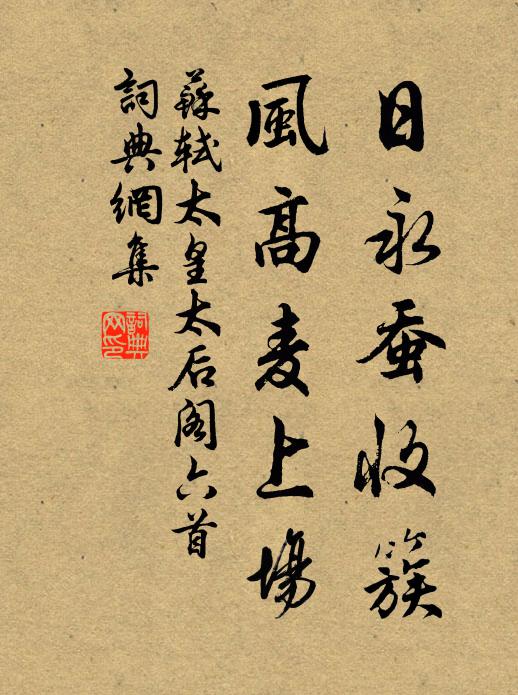 日永蚕收簇
風高麦上場
蘇軾太皇太后阁六首
詞典網集
詞典
网印